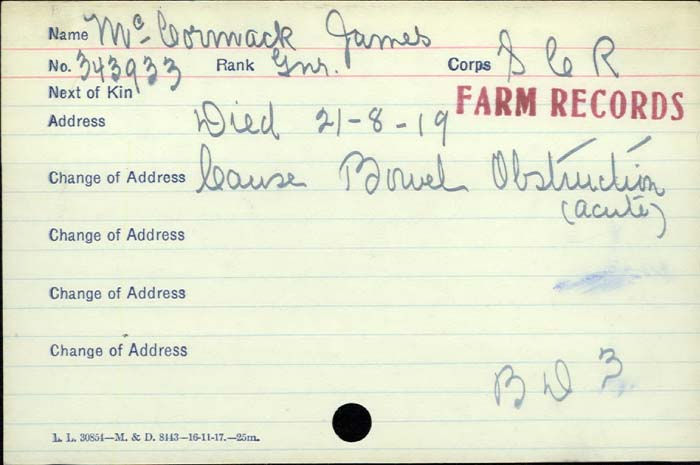 Name Mc Cormack James
No. 343933 Rank Gnr. Corps S C R
Next of Kin FARM RECORDS
Address Died 21-8-19
Change of Address Cause Bowel Obstruction
(acute)
Change of Address
Change of Address
Change of Address
B D 3
L. L. 30854—M. & D. 8443—16-11-17.—25m.